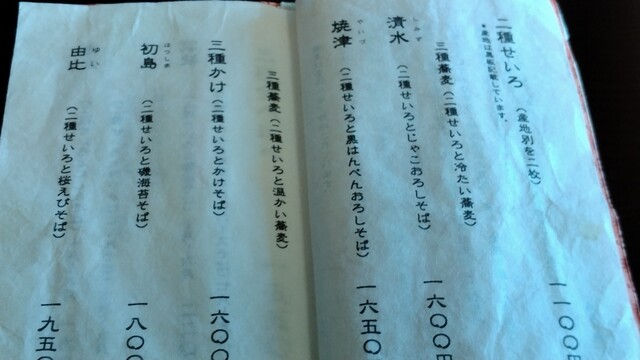 二種せいろ（産地別を二枚） 一一〇〇円
＊産地は黒板記載しています。
三種蕎麦（二種せいろと冷たい蕎麦）
しみず
清水（二種せいろとじゃこおろしそば） 一六〇〇円
やいづ
焼津（二種せいろと黒はんぺんおろしそば） 一六五〇
三種蕎麦（二種せいろと温かい蕎麦）
三種かけ（二種せいろとかけそば） 一六〇〇
はつしま
初島（二種せいろと磯海苔そば） 一八〇〇
ゆい
由比（二種せいろと桜えびそば） 一九五〇